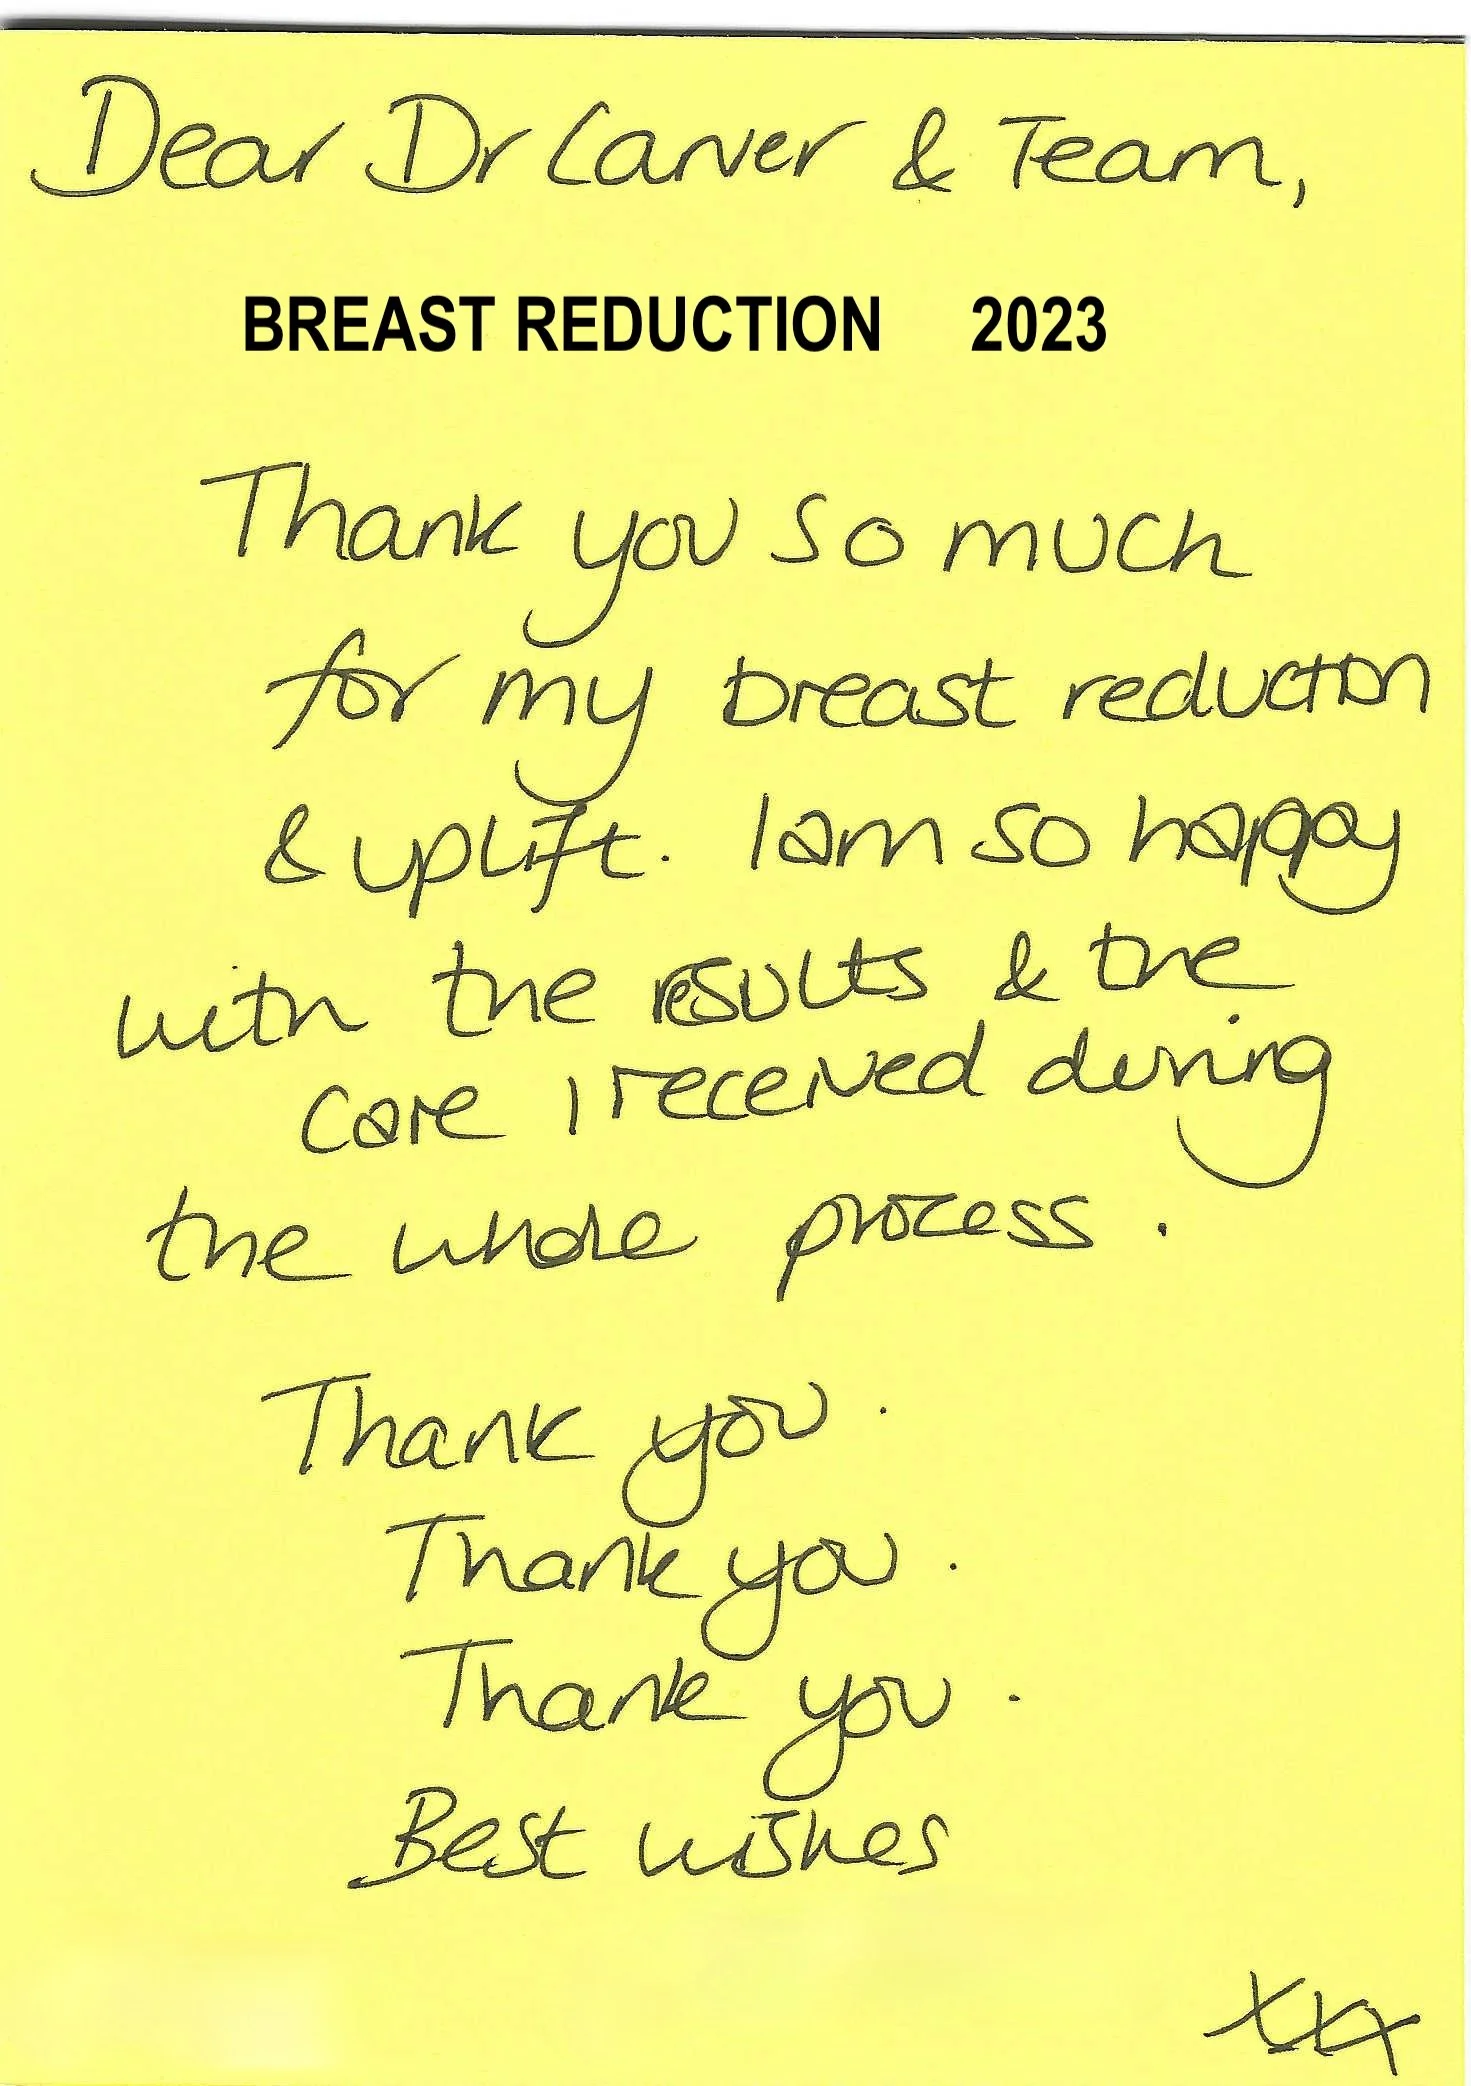 Dear Dr Carver & Team,
BREAST REDUCTION 2023
Thank you so much
for my breast reduction
& uplift. I am so happy
with the results & the
care I received during
the whole process.
Thank you.
Thank you.
Thank you.
Best wishes
xxx